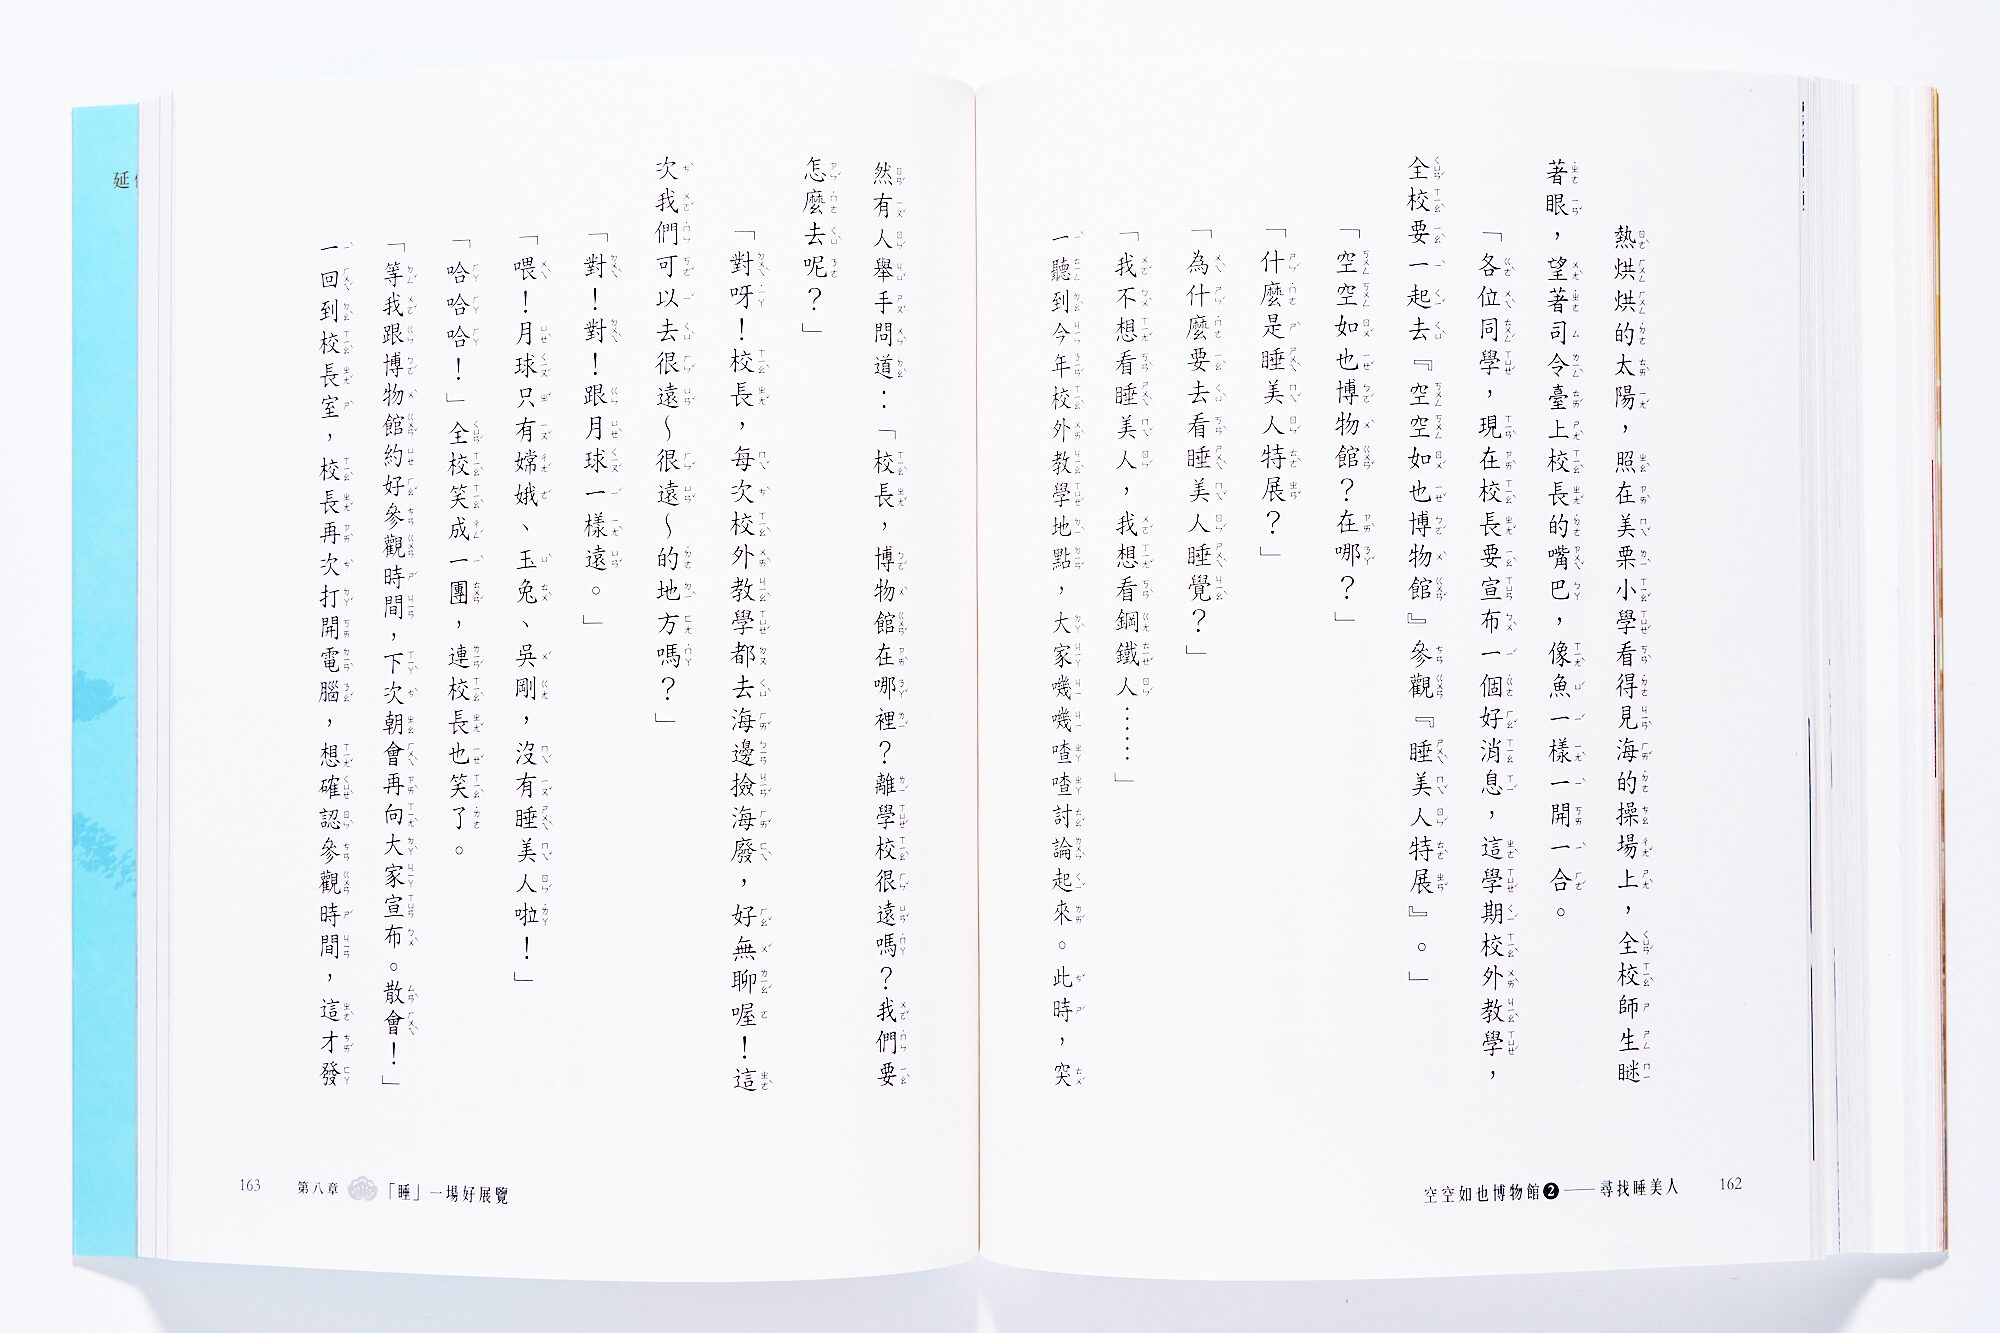 熱烘烘的太陽，照在美栗小學看得見海的操場上，全校師生瞇
著眼，望著司令臺上校長的嘴巴，像魚一樣一開一合。
「各位同學，現在校長要宣布一個好消息，這學期校外教學，
全校要一起去『空空如也博物館』參觀『睡美人特展』。」
「空空如也博物館？在哪？」
「什麼是睡美人特展？」
「為什麼要去看睡美人睡覺？」
「我不想看睡美人，我想看鋼鐵人……」
一聽到今年校外教學地點，大家嘰嘰喳喳討論起來。此時，突
空空如也博物館❷——尋找睡美人
162
然有人舉手問道：「校長，博物館在哪裡？離學校很遠嗎？我們要
怎麼去呢？」
「對呀！校長，每次校外教學都去海邊撿海廢，好無聊喔！這
次我們可以去很遠～很遠～的地方嗎？」
「對！對！跟月球一樣遠。」
「喂！月球只有嫦娥、玉兔、吳剛，沒有睡美人啦！」
「哈哈哈！」全校笑成一團，連校長也笑了。
「等我跟博物館約好參觀時間，下次朝會再向大家宣布。散會！」
一回到校長室，校長再次打開電腦，想確認參觀時間，這才發
163
第八章 「睡」一場好展覽
延